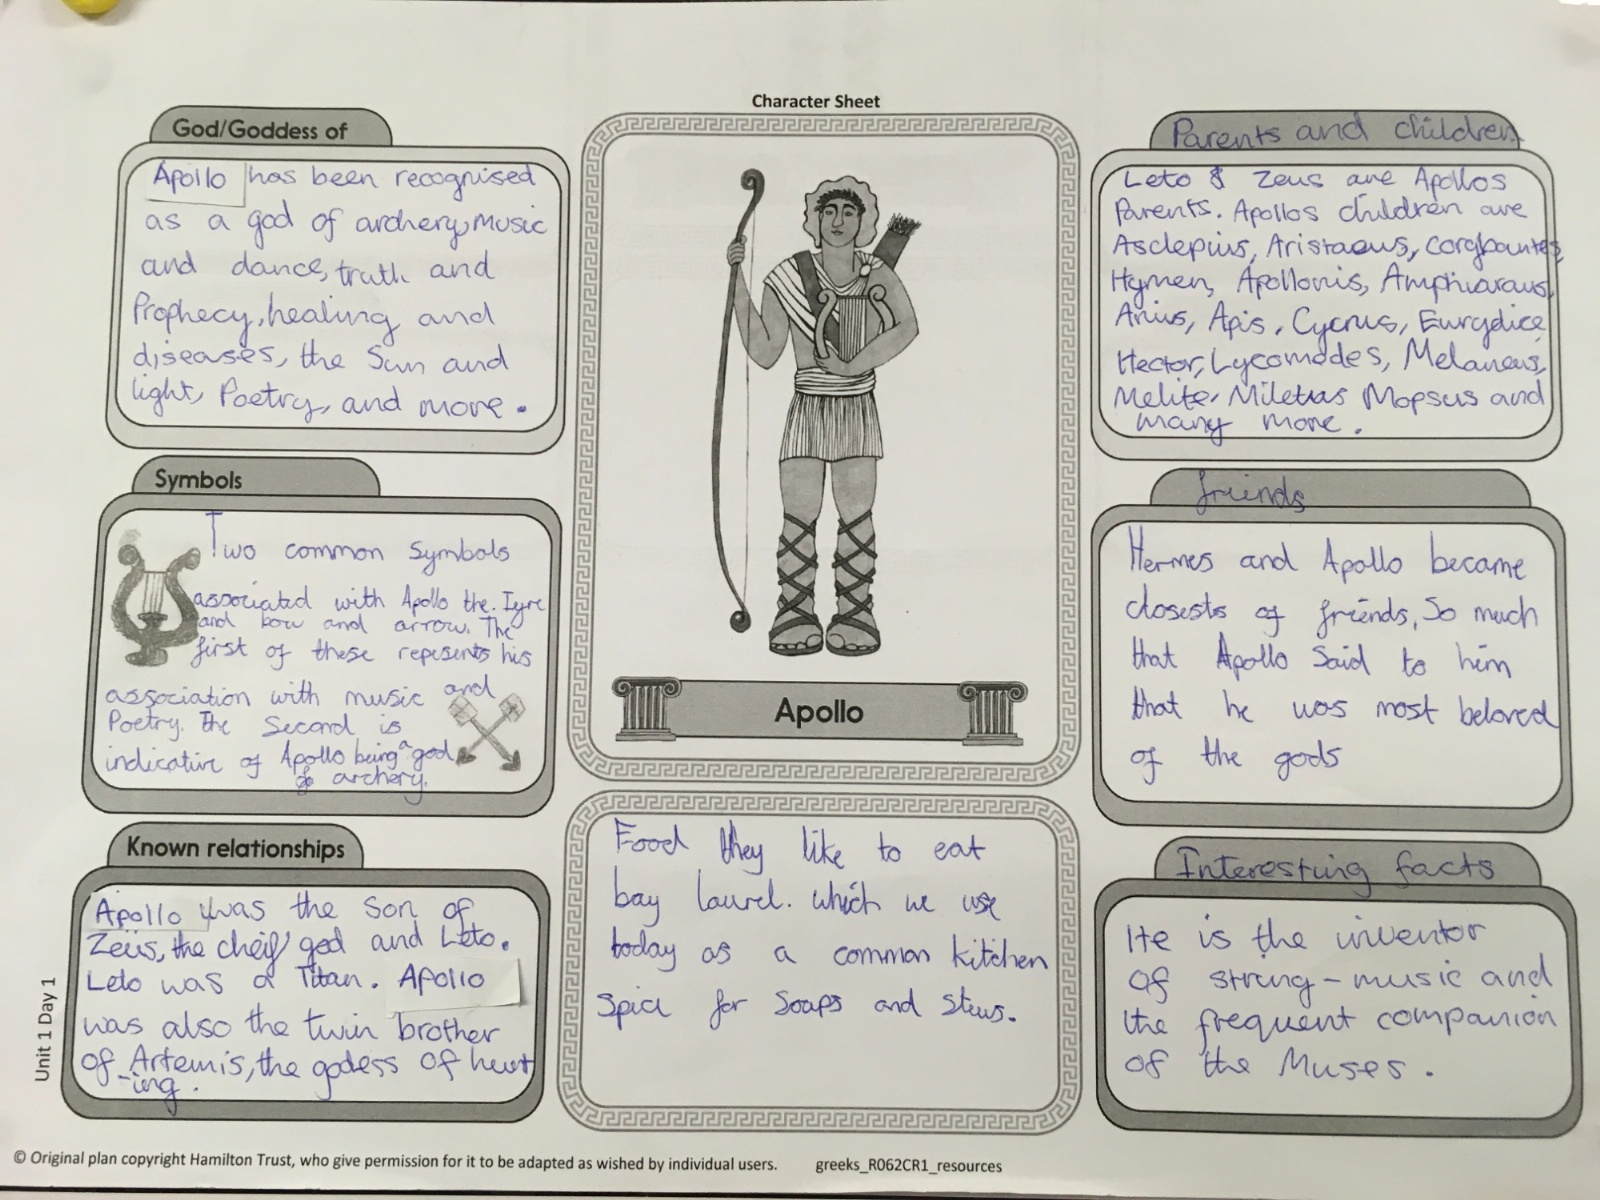 Character Sheet
God/Goddess of
Apollo has been recognised
as a god of archery, music
and dance, truth and
Prophecy, healing and
diseases, the Sun and
light, Poetry, and more.
Symbols
Two common Symbols
associated with Apollo the. lyre
and bow and arrow. The
first of these repesents his
association with music and
Poetry. The Second is
indicative of Apollo being a god
of archery.
Known relationships
Apollo was the Son of
Zeus, the cheif god and Leto.
Leto was a Titan. Apollo
was also the twin brother
of Artemis, the godess of hunt
-ing.
Apollo
Food they like to eat
bay laurel. which we use
today as a common kitchen
Spice for Soaps and Stews.
Parents and children
Leto & Zeus are Apollos
Parents. Apollos children are
Asclepius, Aristaeus, Corybantes,
Hymen, Apollonis, Amphiaraus,
Anius, Apis, Cycnus, Eurydice,
Hector, Lycomedes, Melaneus,
Melite, Miletus Mopsus and
many more.
friends
Hermes and Apollo became
closests of friends, So much
that Apollo Said to him
that he was most beloved
of the gods
Interesting facts
He is the inventor
of string-music and
the frequent companion
of the Muses.
Unit 1 Day 1
© Original plan copyright Hamilton Trust, who give permission for it to be adapted as wished by individual users. greeks_R062CR1_resources